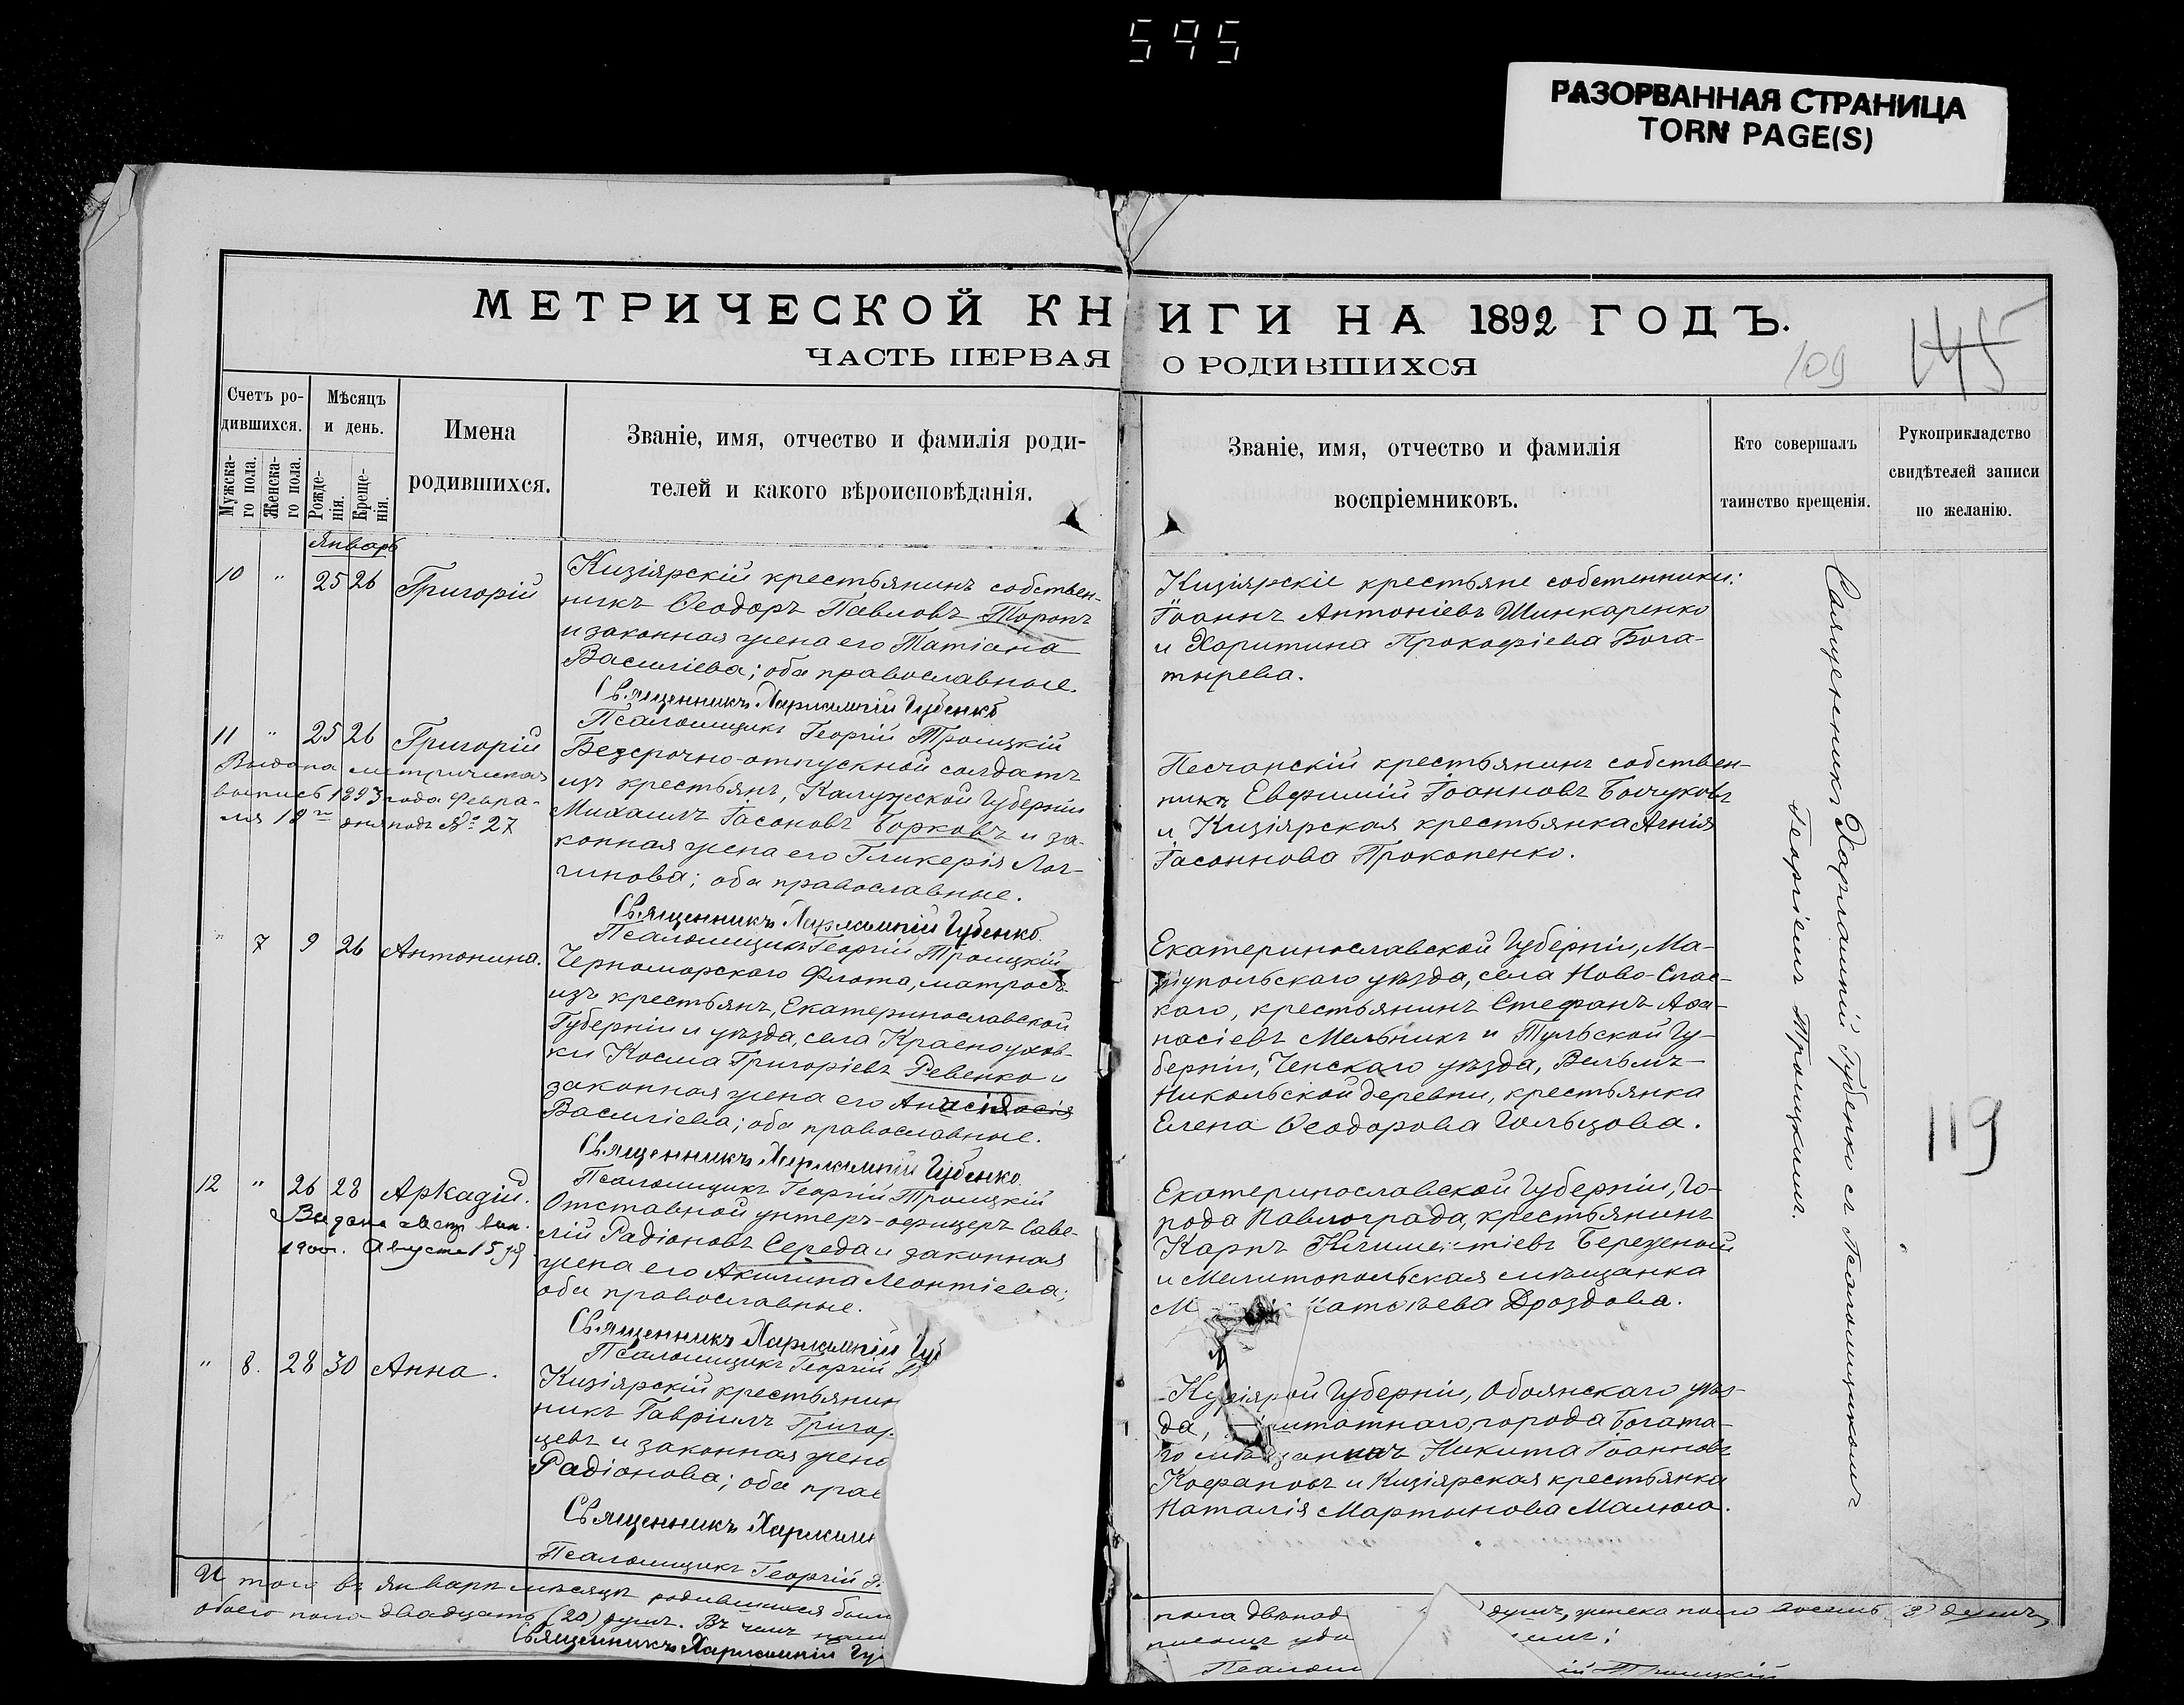 595
РАЗОРВАННАЯ СТРАНИЦА
TORN PAGE(S)
МЕТРИЧЕСКОЙ КНИГИ НА 1892 ГОДЪ.
ЧАСТЬ ПЕРВАЯ О РОДИВШИХСЯ
109
145
Счетъ ро-
дившихся.
Мужска-
го пола.
Женска-
го пола.
Мѣсяцъ
и день.
Рожде-
нія.
Креще-
нія.
Имена
родившихся.
Званіе, имя, отчество и фамилія роди-
телей и какого вѣроисповѣданія.
Званіе, имя, отчество и фамилія
воспріемниковъ.
Кто совершалъ
таинство крещенія.
Рукоприкладство
свидѣтелей записи
по желанію.
Январь
10 " 25 26 Григорій
Кизіярскій крестьянинъ собствен-
никъ Ѳеодоръ Павловъ Торопъ
и законная жена его Татіана
Василіева; оба православные.
Священникъ Харлампій Губенко
Псаломщикъ Георгій Троицкій
Кизіярскіе крестьяне собственники:
Іоаннъ Антоніевъ Шинкаренко
и Харитина Прокофіева Бога-
тырева.
11 " 25 26 Григорій
Выдана метрическая
выпись 1893 года Февра-
ля 18го дня подъ № 27
Безсрочно-отпускной солдатъ
изъ крестьянъ, Калужской Губерніи
Михаилъ Іасоновъ Борковъ и за-
конная жена его Гликерія Лог-
гинова; оба православные.
Священникъ Харлампій Губенко
Псаломщикъ Георгій Троицкій
Песчанскій крестьянинъ собствен-
никъ Евфимій Іоанновъ
и Кизіярская крестьянка Агнія
Іасоннова Прокопенко.
" 7 9 26 Антонина.
Черноморскаго Флота, матросъ
изъ крестьянъ, Екатеринославской
Губерніи и уѣзда, села
Косма Григоріевъ Ревенко и
законная жена его
Василіева; оба православные.
Священникъ Харлампій Губенко
Псаломщикъ Георгій Троицкій
Екатеринославской Губерніи, Ма-
ріупольскаго уѣзда, села Ново-Спас-
каго, крестьянинъ Стефанъ Аѳа-
насіевъ Мельникъ и Тульской Гу-
берніи, Ченскаго уѣзда,
Никольской деревни, крестьянка
Елена Ѳеодорова Гольцова.
12 " 26 28 Аркадій.
Выдана метр. вып.
1900г. Августа 15 дня
Отставной унтеръ-офицеръ Саве-
лій Радіоновъ Середа и законная
жена его Акилина Леонтіева;
оба православные.
Священникъ Харлампій Губ
Псаломщикъ Георгій
Екатеринославской Губерніи, го-
рода Павлограда, крестьянинъ
Карпъ Климентіевъ Березеной
и Мелитопольская мѣщанка
М Дроздова.
" 8. 28 30 Анна.
Кизіярскій крестьянин
никъ Гавріилъ Григор.
цевъ и законная жена
Радіонова; оба прав
Священникъ Харламп
Псаломщикъ Георгій
Губерніи, Обоянскаго уѣз-
да, города Богата-
го Никита Іоанновъ
и Кизіярская крестьянка
Наталія Мартынова Малюга.
Священникъ Харлампій Губенко съ Псаломщикомъ
Георгіемъ Троицкимъ.
119
Итого въ Январѣ мѣсяцѣ родившихся было
обоего пола двадцать (20) душъ. Въ чемъ
Священникъ Харлампій Гу
пола двѣнад душъ, женска пола восемь (8) душъ,
Псалом ій Троицкій